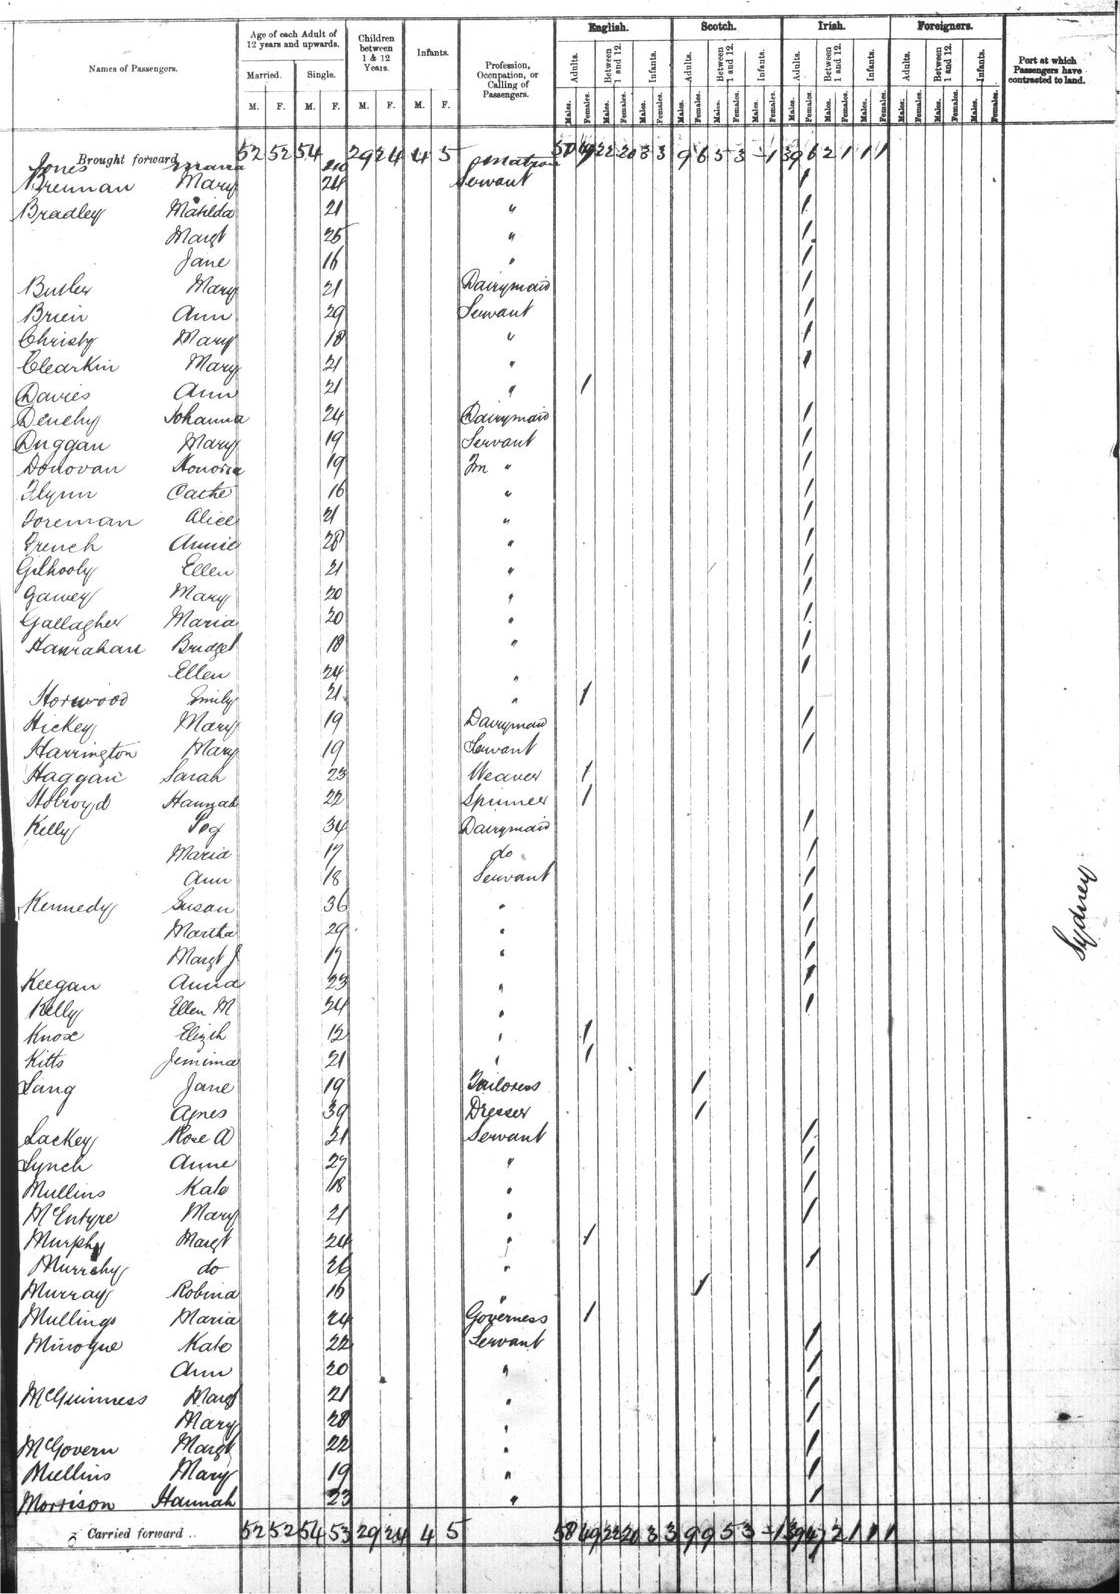 Names of Passengers.
Age of each Adult of 12 years and upwards.
Married. Single.
M. F. M. F.
Children between 1 & 12 Years.
M. F.
Infants.
M. F.
Profession, Occupation, or Calling of Passengers.
English. Scotch. Irish. Foreigners.
Adults. Between 1 and 12. Infants. Adults. Between 1 and 12. Infants. Adults. Between 1 and 12. Infants. Adults. Between 1 and 12. Infants.
Males. Females. Males. Females. Males. Females. Males. Females. Males. Females. Males. Females. Males. Females. Males. Females. Males. Females. Males. Females. Males. Females. Males. Females.
Port at which Passengers have contracted to land.
Brought forward 52 52 54 29 24 4 5 22 20 3 3 9 6 5 3 - 1 39 6 2 1 1 1
Jones Maria Matron
Brennan Mary 24 Servant 1
Bradley Matilda 21 " 1
Margt 25 " 1
Jane 16 " 1
Butler Mary 21 Dairymaid 1
Brien Ann 29 Servant 1
Christy Mary 18 " 1
Clearkin Mary 21 " 1
Davies Ann 21 " 1
Denehy Johanna 24 Dairymaid 1
Duggan Mary 19 Servant 1
Donovan Honoria 19 " 1
Flynn Cathe 16 " 1
Foreman Alice 21 " 1
French Annie 28 " 1
Gilhooly Ellen 21 " 1
Gavey Mary 20 " 1
Gallagher Maria 20 " 1
Hanrahan Bridget 18 " 1
Ellen 24 " 1
Horwood Emily 21 " 1
Hickey Mary 19 Dairymaid 1
Harrington Mary 19 Servant 1
Haggan Sarah 23 Weaver 1
Holroyd Hannah 22 Spinner 1
Kelly 34 Dairymaid 1
Maria 17 do 1
Ann 18 Servant 1
Kennedy Susan 36 " 1
Martha 29 " 1
Margt J 17 " 1
Keegan Anna 23 " 1
Kelly Ellen M 24 " 1
Knox Elizth 12 " 1
Kitts Jemima 21 " 1
Lang Jane 19 Tailoress 1
Agnes 39 Dresser 1
Lackey Rose A 21 Servant 1
Lynch Anne 27 " 1
Mullins Kate 18 " 1
McEntyre Mary 21 " 1
Murphy Margt 24 " 1
Murrehy do 26 " 1
Murray Robina 16 " 1
Mullings Maria 24 Governess 1
Minogue Kate 22 Servant 1
Ann 20 " 1
McGuinness Margt 21 " 1
Mary 28 " 1
McGovern Margt 22 " 1
Mullins Mary 19 " 1
Morrison Hannah 23 " 1
Carried forward .. 52 52 54 53 29 24 4 5 58 49 22 20 3 3 9 9 5 3 - 1 39 47 2 1 1 1
Sydney